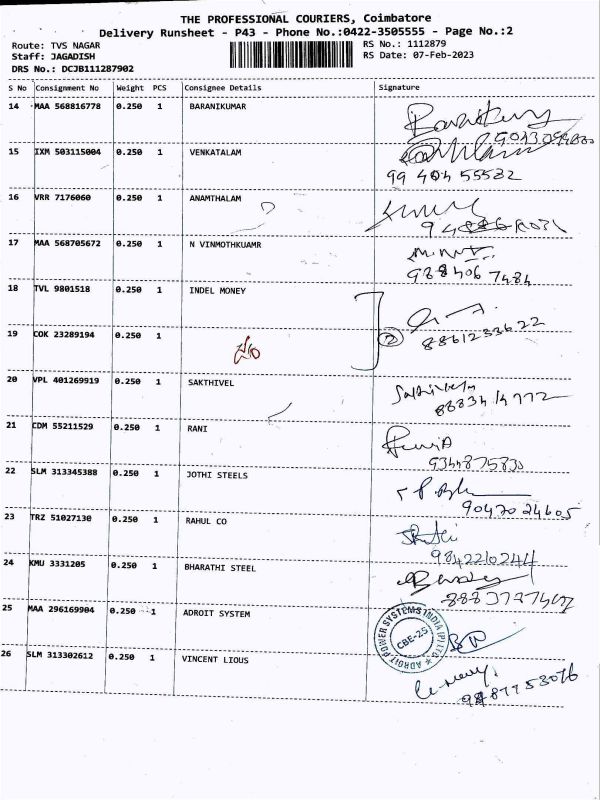 THE PROFESSIONAL COURIERS, Coimbatore
Delivery Runsheet - P43 - Phone No.:0422-3505555 - Page No.:2
Route: TVS NAGAR RS No.: 1112879
Staff: JAGADISH RS Date: 07-Feb-2023
DRS No.: DCJB111287902
S No Consignment No Weight PCS Consignee Details Signature
14 MAA 568816778 0.250 1 BARANIKUMAR
15 IXM 503115004 0.250 1 VENKATALAM
99 404 55582
16 VRR 7176060 0.250 1 ANAMTHALAM
17 MAA 568705672 0.250 1 N VINMOTHKUAMR
988406 7484
18 TVL 9801518 0.250 1 INDEL MONEY
8861233622
19 COK 23289194 0.250 1
2
20 VPL 401269919 0.250 1 SAKTHIVEL
Sakthivel
8883414772
21 CDM 55211529 0.250 1 RANI
9344875830
22 SLM 313345388 0.250 1 JOTHI STEELS
9047024605
23 TRZ 51027130 0.250 1 RAHUL CO
9842210244
24 KMU 3331205 0.250 1 BHARATHI STEEL
25 MAA 296169904 0.250 1 ADROIT SYSTEM
ADROIT POWER SYSTEMS INDIA (P) LTD
CBE-25
26 SLM 313302612 0.250 1 VINCENT LIOUS